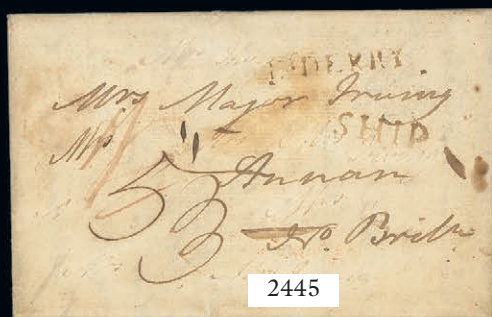 L'DERRY
Mrs Major Irving
SHIP
Annan
No. Britn
2445